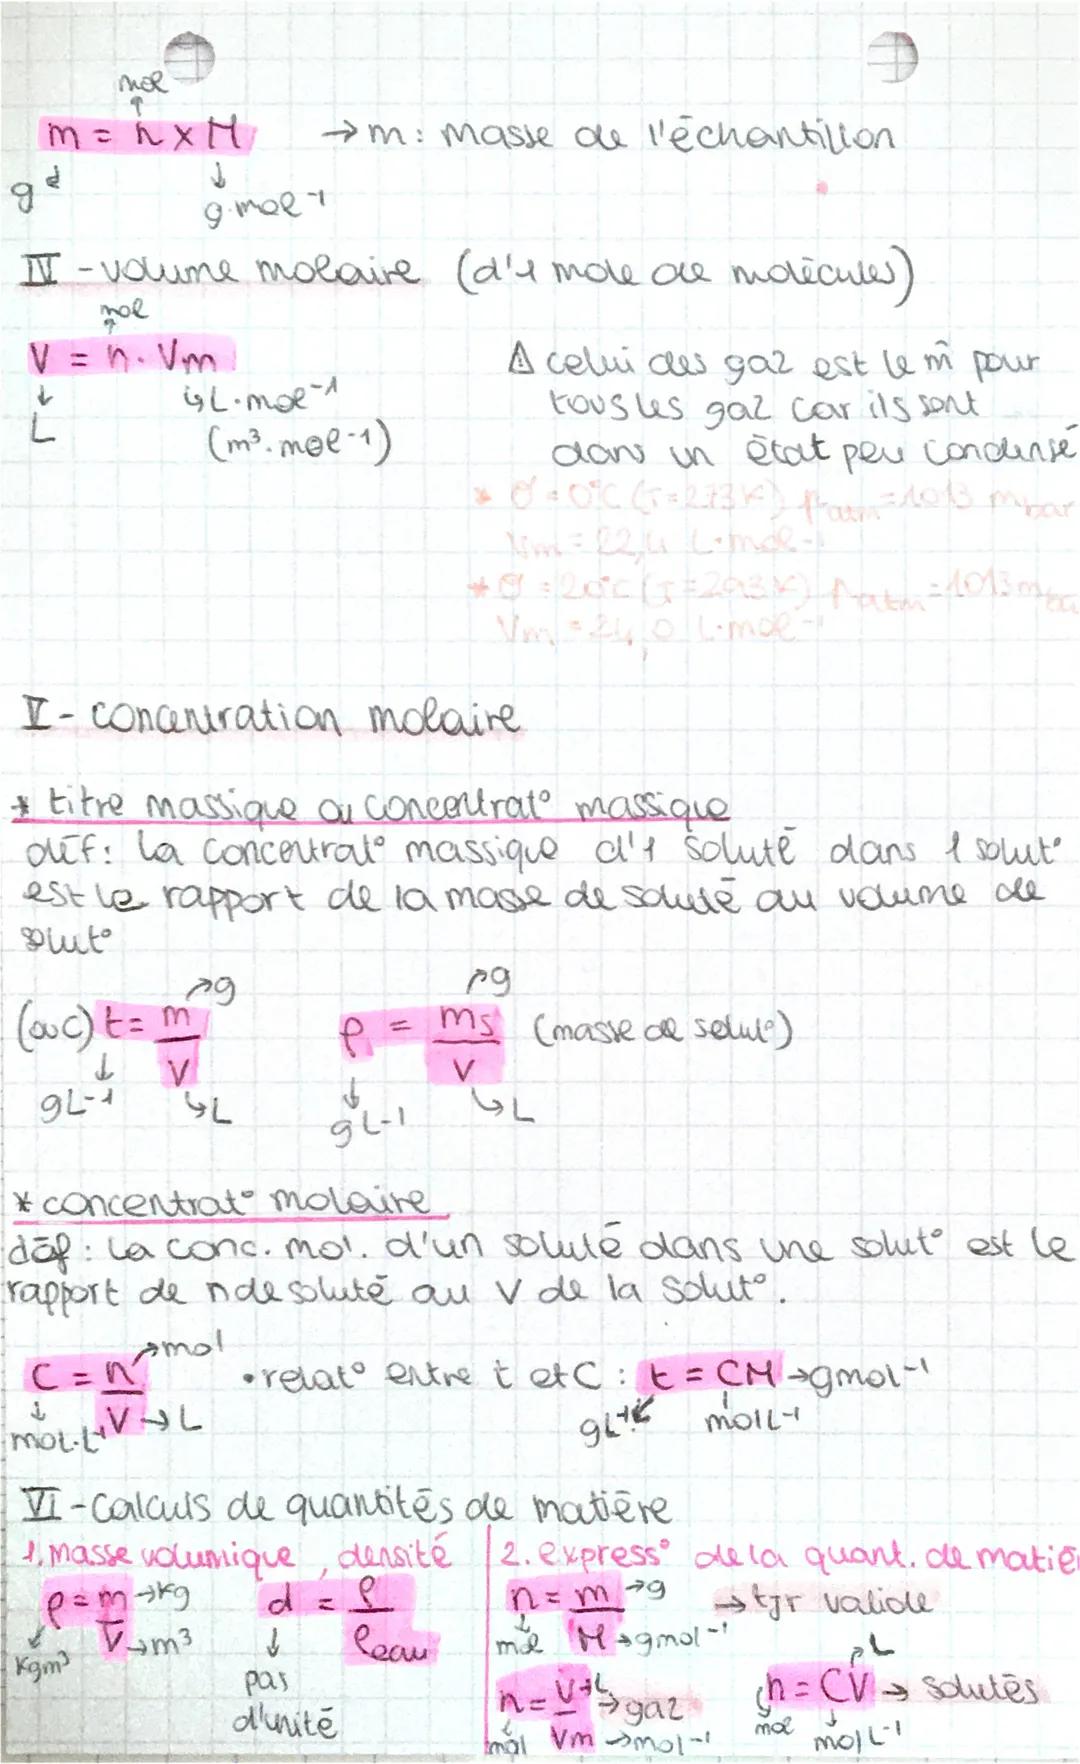 mol
↑
m = n x M → m: masse de l'échantillon
↓ ↓
g g.mol-1
IV - volume molaire (d'1 mole de molécules)
mol
↑
V = n. Vm
↓ ↳ L.mol-1
L (m³.mol-1)
⚠ celui des gaz est le m̂ pour
tous les gaz car ils sont
dans un état peu condensé
* θ = 0°C (T=273K) Patm = 1013 mbar
Vm = 22,4 L.mol-1
* θ = 20°C (T=293K) Patm = 1013 mba
Vm = 24,0 L.mol-1
V - concentration molaire
* titre massique ou concentrat° massique
déf: La concentrat° massique d'1 soluté dans 1 solut°
est le rapport de la masse de soluté au volume de
solut°
(ou C) t = m/V ρ = ms/V (masse de solut°)
↗g ↗g
↓ ↳L ↓ ↳L
gL-1 gL-1
* concentrat° molaire
déf: La conc. mol. d'un soluté dans une solut° est le
rapport de n de soluté au V de la solut°.
C = n/V •relat° entre t et C : t = CM → gmol-1
↗mol
↓ → L
mol.L-1 gL-1 molL-1
VI - Calculs de quantités de matière
1. masse volumique, densité
ρ = m/V d = ρ/ρeau
→kg
→m³
kgm³ pas
d'unité
2. express° de la quant. de matiè
n = m/M → tjr valide
→g
mol →gmol-1
n = V/Vm → gaz
→L
mol →mol-1
n = CV → solutés
↗L
mol molL-1